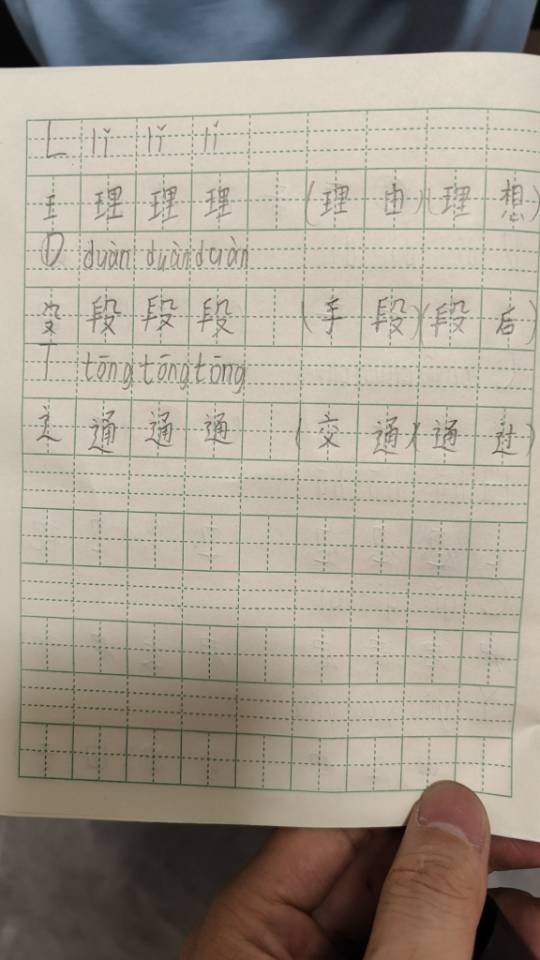 L lǐ lǐ lǐ
王 理 理 理 (理由)(理想)
D duàn duàn duàn
殳 段 段 段 (手段)(段后)
T tōng tōng tōng
辶 通 通 通 (交通)(通过)